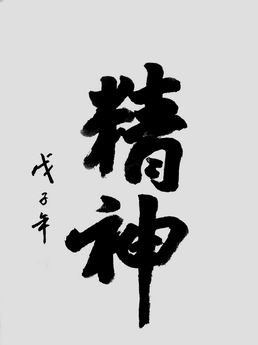 精神
戊子年